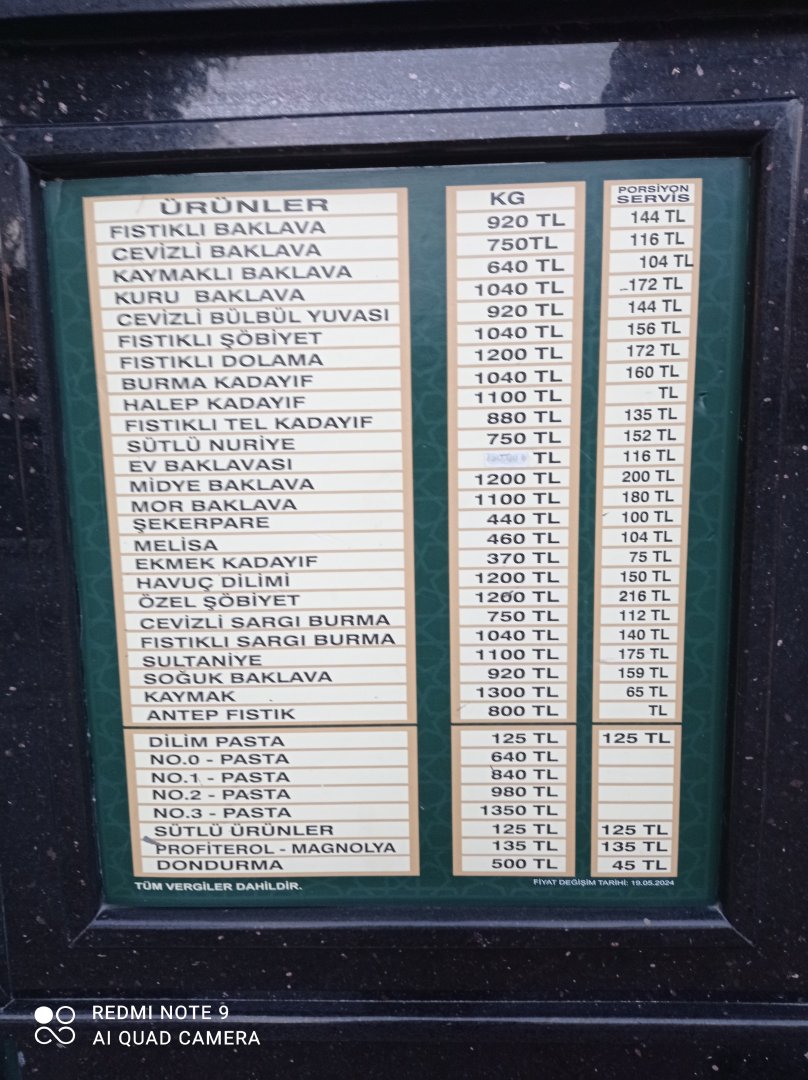 ÜRÜNLER KG PORSİYON SERVİS
FISTIKLI BAKLAVA 920 TL 144 TL
CEVİZLİ BAKLAVA 750TL 116 TL
KAYMAKLI BAKLAVA 640 TL 104 TL
KURU BAKLAVA 1040 TL 172 TL
CEVİZLİ BÜLBÜL YUVASI 920 TL 144 TL
FISTIKLI ŞÖBİYET 1040 TL 156 TL
FISTIKLI DOLAMA 1200 TL 172 TL
BURMA KADAYIF 1040 TL 160 TL
HALEP KADAYIF 1100 TL TL
FISTIKLI TEL KADAYIF 880 TL 135 TL
SÜTLÜ NURİYE 750 TL 152 TL
EV BAKLAVASI TL 116 TL
MİDYE BAKLAVA 1200 TL 200 TL
MOR BAKLAVA 1100 TL 180 TL
ŞEKERPARE 440 TL 100 TL
MELİSA 460 TL 104 TL
EKMEK KADAYIF 370 TL 75 TL
HAVUÇ DİLİMİ 1200 TL 150 TL
ÖZEL ŞÖBİYET 1200 TL 216 TL
CEVİZLİ SARGI BURMA 750 TL 112 TL
FISTIKLI SARGI BURMA 1040 TL 140 TL
SULTANİYE 1100 TL 175 TL
SOĞUK BAKLAVA 920 TL 159 TL
KAYMAK 1300 TL 65 TL
ANTEP FISTIK 800 TL TL
DİLİM PASTA 125 TL 125 TL
NO.0 - PASTA 640 TL
NO.1 - PASTA 840 TL
NO.2 - PASTA 980 TL
NO.3 - PASTA 1350 TL
SÜTLÜ ÜRÜNLER 125 TL 125 TL
PROFİTEROL - MAGNOLYA 135 TL 135 TL
DONDURMA 500 TL 45 TL
TÜM VERGİLER DAHİLDİR. FİYAT DEĞİŞİM TARİHİ: 19.05.2024
REDMI NOTE 9
AI QUAD CAMERA